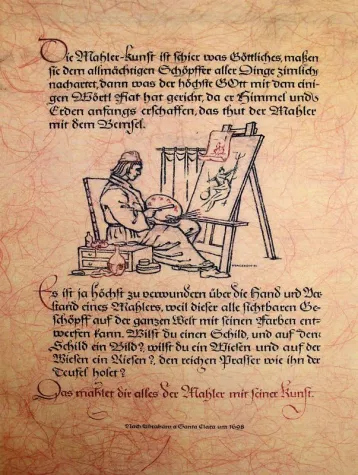 Die Mahler-Kunst ist schier was Göttliches, maßen
sie dem allmächtigen Schöpffer aller Dinge zimlich
nachartet, dann was der höchste GOtt mit dem eini-
gen Wörtl Fiat hat gericht, da er Himmel und
Erden anfangs erschaffen, das thut der Mahler
mit dem Bemsel.
Es ist ja höchst zu verwundern über die Hand und Ver-
stand eines Mahlers, weil dieser alle sichtbaren Ge-
schöpff auf der ganzen Welt mit seinen Farben ent-
werfen kann. Wilst du einen Schild, und auf den
Schild ein Bild? wilst du ein Wiesen und auf der
Wiesen ein Riesen?, den reichen Prasser wie ihn der
Teufel holet?
Das mahlet dir alles der Mahler mit seiner Kunst.
Nach Abraham a Santa Clara um 1698